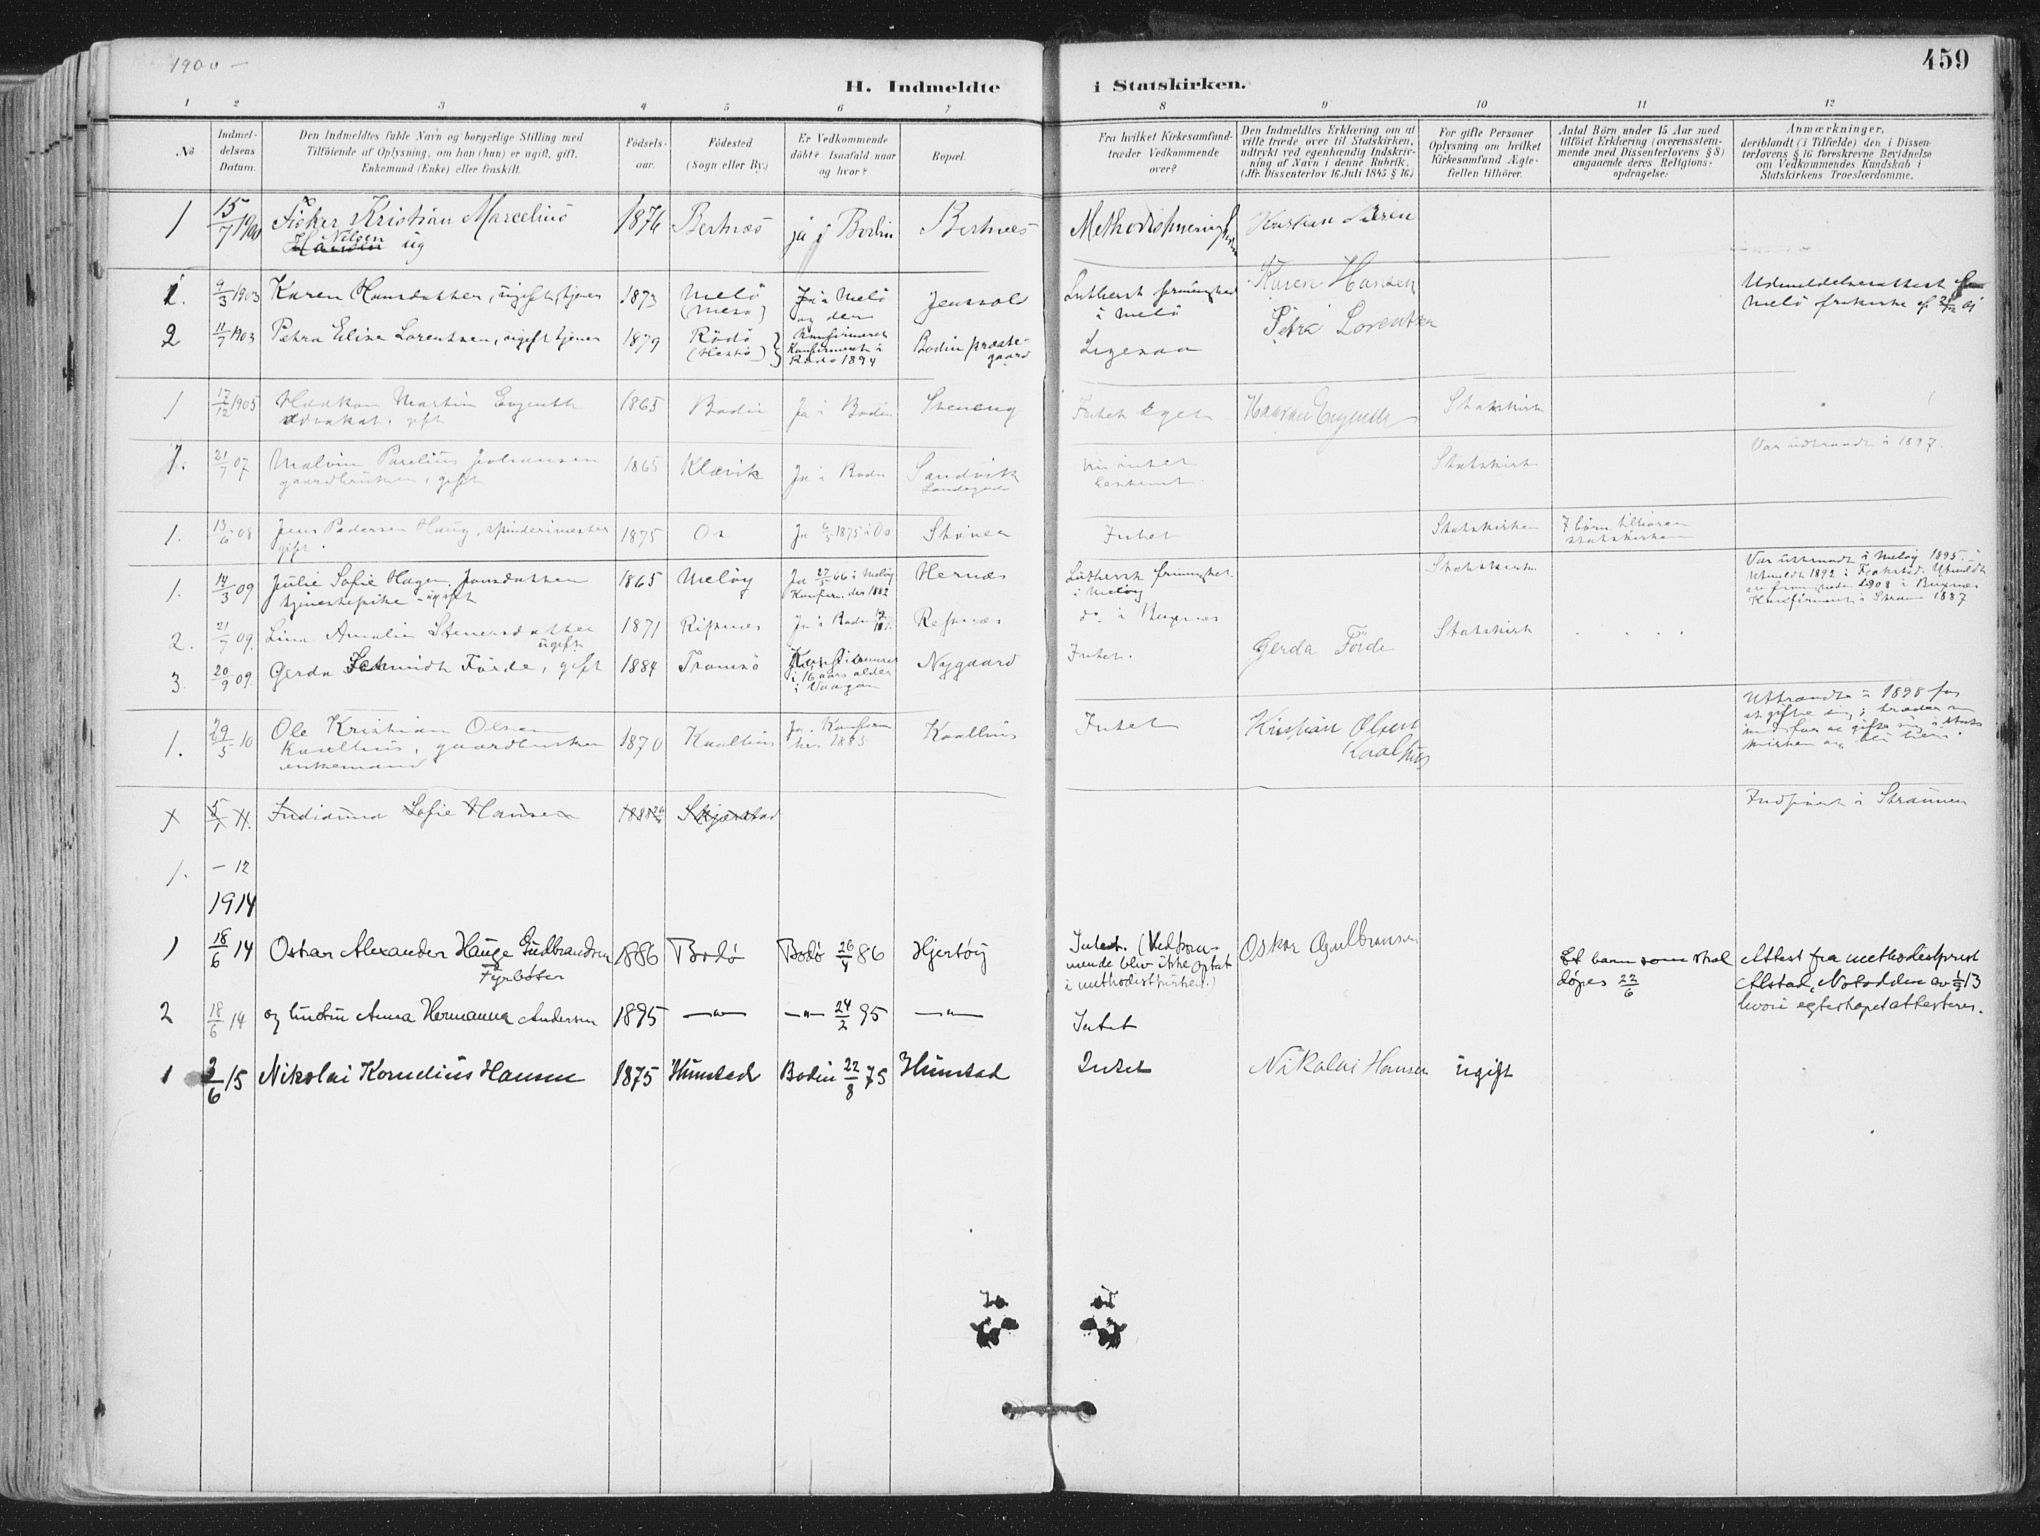 1900 –
459
H. Indmeldte i Statskirken.
1 2 3 4 5 6 7 8 9 10 11 12
No
Indmel-
delsens
Datum.
Den Indmeldtes fulde Navn og borgerlige Stilling med
Tilføiende af Oplysning, om han (hun) er ugift, gift,
Enkemand (Enke) eller fraskilt.
Fødsels-
aar.
Fødested
(Sogn eller By.)
Er Vedkommende
døbt? Isaafald naar
og hvor?
Bopæl.
Fra hvilket Kirkesamfund
træder Vedkommende
over?
Den Indmeldtes Erklæring om at
ville træde over til Statskirken,
udtrykt ved egenhændig Indskriv-
ning af Navn i denne Rubrik.
(Jfr. Dissenterlov 16 Juli 1845 § 16.)
For gifte Personer
Oplysning om hvilket
Kirkesamfund Ægte-
fællen tilhører.
Antal Børn under 15 Aar med
tilføiet Erklæring (overensstem-
mende med Dissenterlovens § 8)
angaaende deres Religions-
opdragelse.
Anmærkninger,
deriblandt (i Tilfælde) den i Dissen-
terlovens § 16 foreskrevne Bevidnelse
om Vedkommendes Kundskab i
Statskirkens Troeslærdomme.
1 15/7 1900 Fisker Kristian Marcelius 1876 Bertnæs ja i Bodin Bertnæs
Hansen Nilsen ug
1. 9/3 1903 Karen Hansdatter, ugift, tjener 1873 Melö Ja i Melö Jensvold Luthersk frimenighed Karen Hansen Udmeldelsesattest fra
(Mesö) og der i Melö Melö frikirke
2 11/7 1903 Petra Elise Lorentsen, ugift tjener 1879 Rödö Konfirmeret Bodin præste- Ligesaa Petra Lorentsen
(Hestö) Konfirmert i gaard
Rödö 1894
1 17/12 1905 Haakon Martin Evjenth 1865 Bodin Ja i Bodin Steneng Intet Haakon Evjenth Statskirk
advokat. gift
1. 21/7 07 Malvin Parelius Johansen 1865 Klævik Ja i Bodin Sandvik Statskirk Var udtraadt i 1897.
gaardbruker, gift Landegode bestemt.
1. 13/6 08 Jens Pedersen Haug, spinderimester 1875 Os Ja 1875 i Os Intet Statskirken 7 börn tilhörer
gift. statskirken
1. 14/3 09 Julie Sofie Hagen Jonsdatter 1865 Meløy Ja 27/5 66 i Meløy Hernæs Luthersk frimenighet Statskirk Var uttraadt i Meløy 1895.
tjenestepike - ugift Konfirm. der 1882 i Meløy Utmeldt 1892 i
2. 21/7 09. Lina Amalia Stenersdatter 1871 Ja i Bodin Refsnæs do. i Buxnæs Statskirk Konfirmert i Straum 1887
ugift
3. 20/9 09. Gerda Schmidt Förde, gift 1884 Tromsö Konfirmeret Nygaard Intet. Gerda Förde
i 16 aars alder
i Vaagan
1. 29/5 10 Ole Kristian Olsen 1870 Kaalhus Ja. Konfirm Kaalhus Intet Kristian Olsen Uttraadte i 1898 for
Kaalhus, gaardbruker her 1885. Kaalhus at gifte sig; træder nu
enkemand ind for at gifte sig i stats
kirken og bli
1 5/7 11. Indianna Sofie Hansen Skjerstad Indfört i Straumen
1. – 12
1914
1 18/6 14 Oskar Alexander Hauge Gudbrandsen 1886 Bodø Bodø 26/4 86 Hjertøy Intet. (Vedkom- Oskar Gulbransen Et barn som skal Attest fra methodistprest
Fyrbøter mende blev ikke optat døpes 22/6 Alstad, Notodden av 1/5 13
i methodistkirken.) hvori egteskapet attesteres.
2 18/6 14 og hustru Anna Hermanna Andersen 1895 –"– –"– 24/2 95 –"– Intet
1 2/6 15 Nikolai Kornelius Hansen 1875 Hunstad Bodin 22/8 75 Hunstad Intet Nikolai Hansen ugift